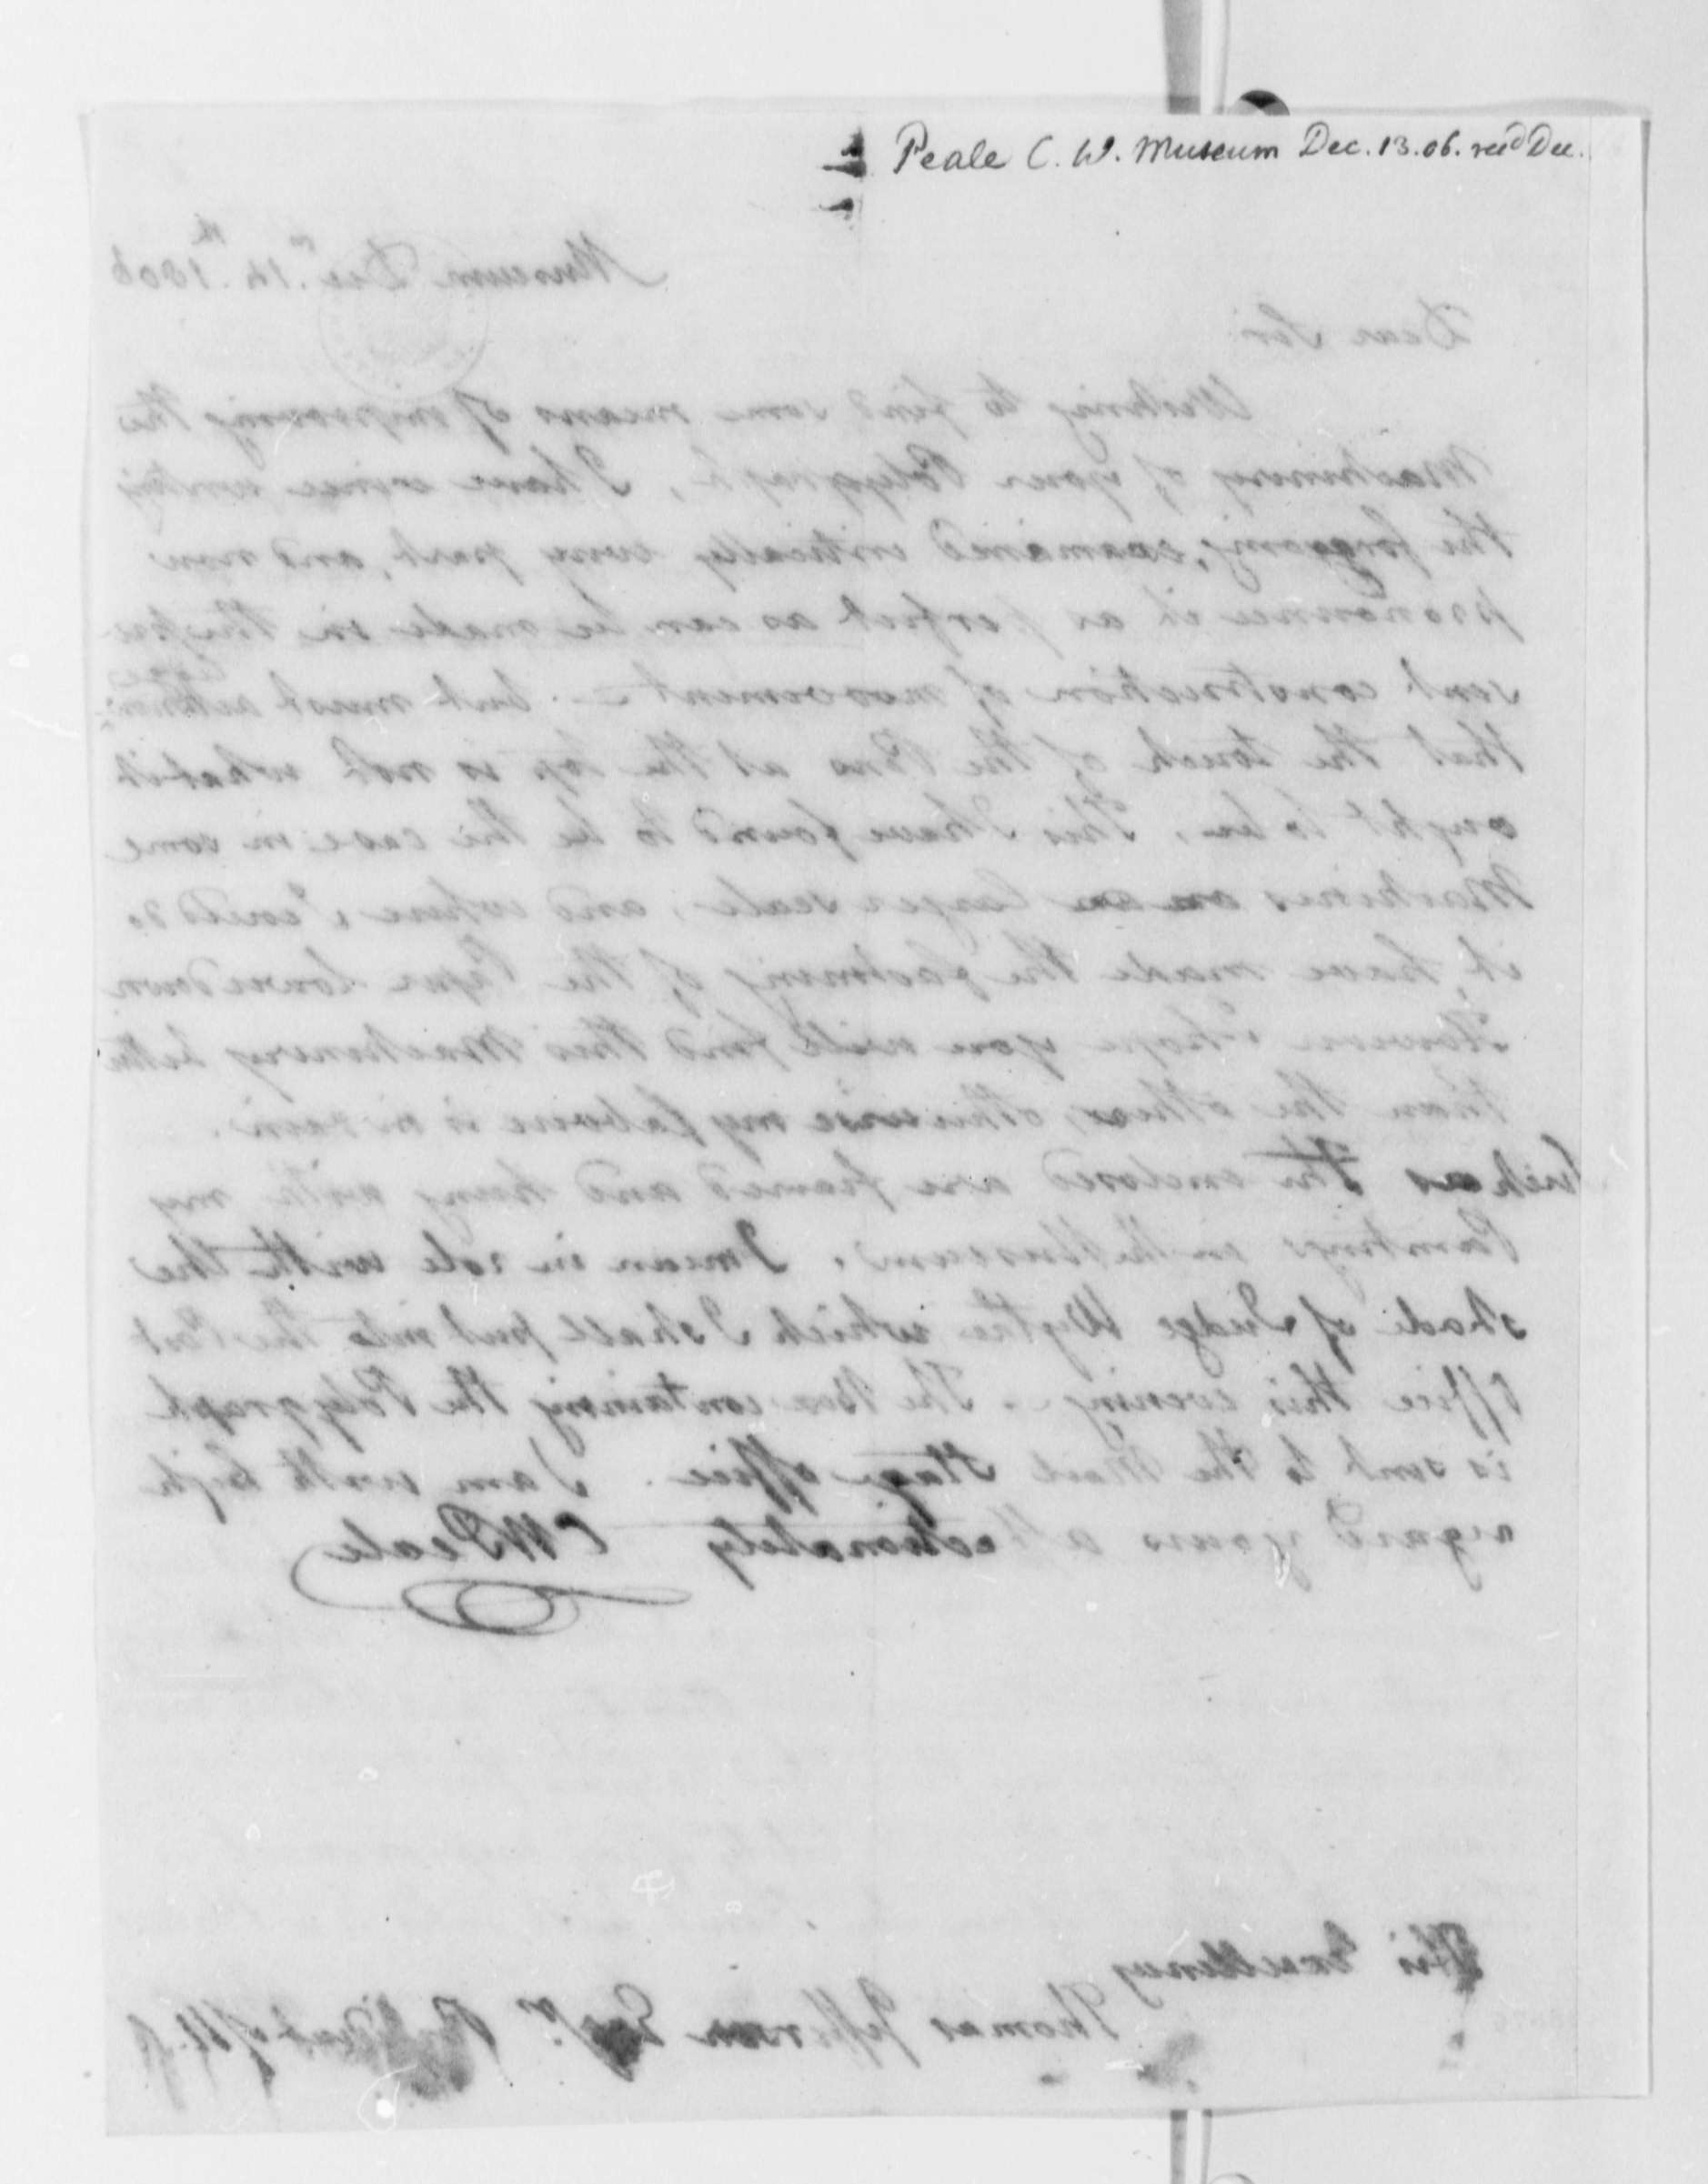 Peale C. W. Museum Dec. 13. 06. recd Dec.
Museum Decr. 14th. 1806
Dear Sir
Wishing to find some means of improving the
Machinery of your Polygraph, I have since writing
the foregoing, examined critically every part, and now
pronounce it as perfect as can be made in this pre
sent construction of moovement = but must
that the touch of the Pens at the top is not what it
ought to be, This I have found to be the case in some
Machines on a larger scale, and where I could do
it, have made the fastning of the Paper lower down
However I hope you will find this Machinery better
than the other, otherwise my labour is in vain.
Such as the enclosed are framed and hung with my
Paintings in the Museum. I mean in role with the
shade of Judge Wythe which I shall put into the Post
Office this evening. The Box containing the Polygraph
is sent to the Mail Stage office. I am with high
regard yours affectionately CWPeale
His Excellency
Thomas Jefferson Esqr.